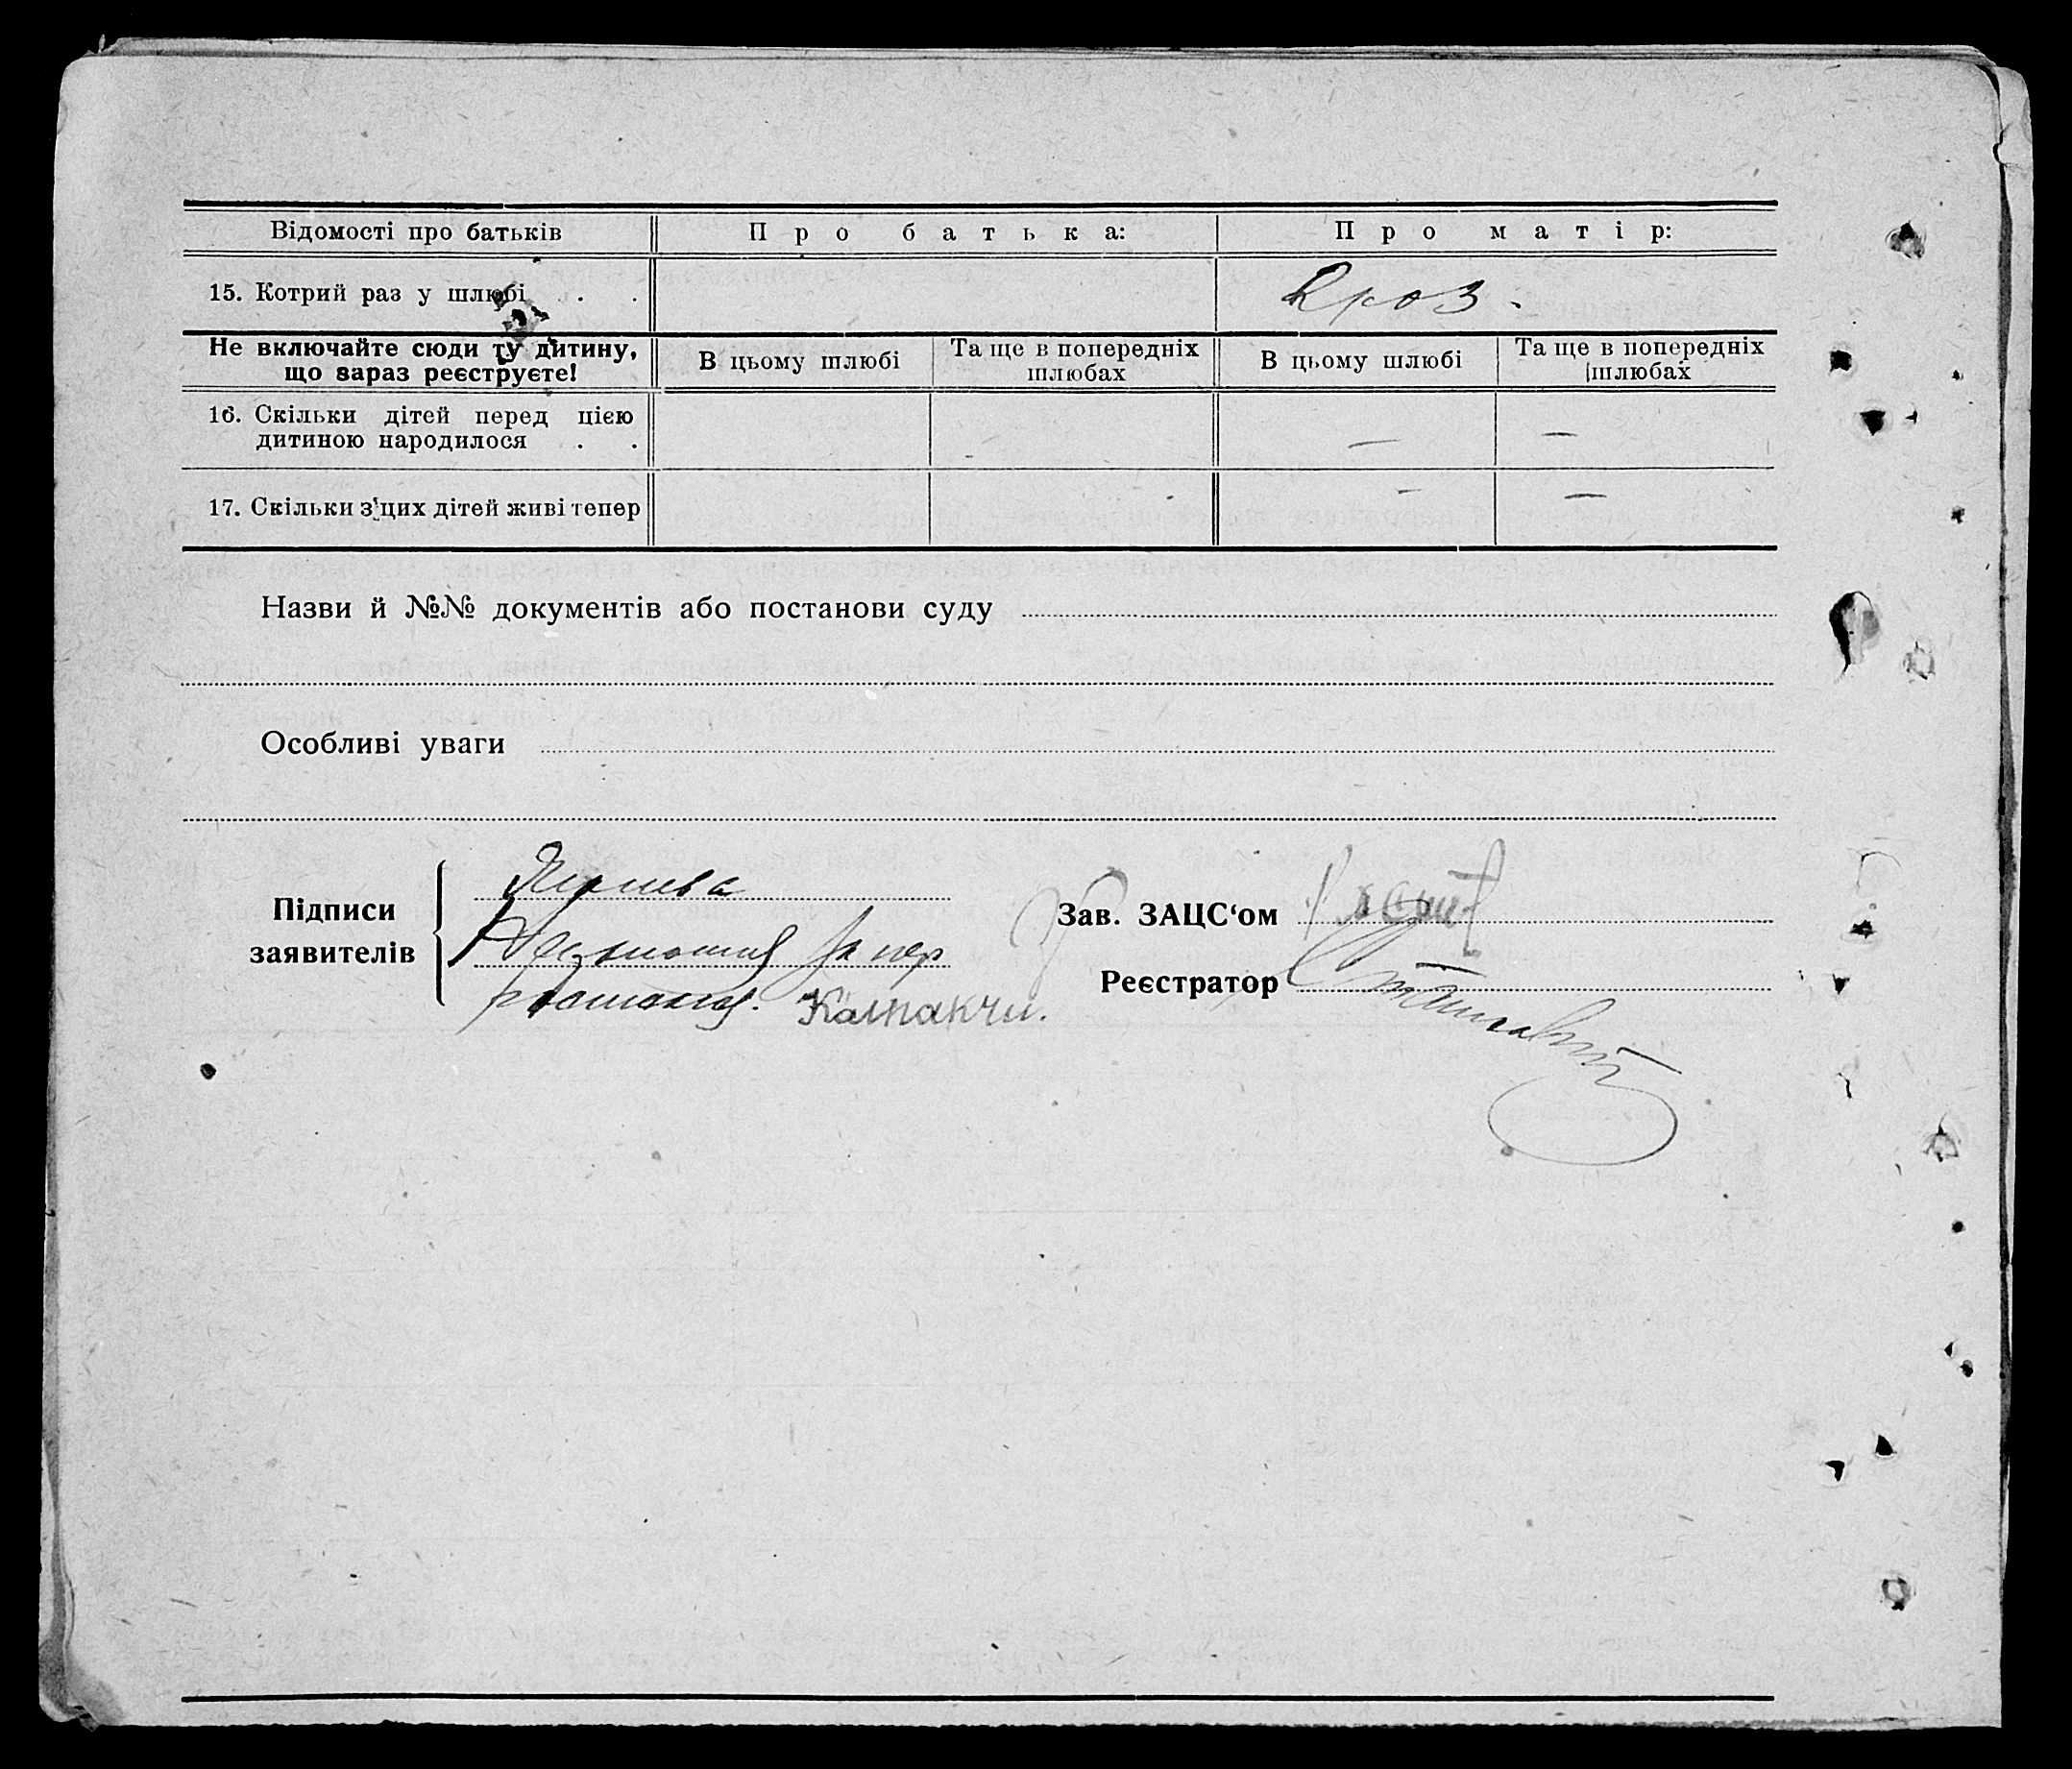 Відомості про батьків
Про батька:
Про матір:
15. Котрий раз у шлюбі . .
Не включайте сюди ту дитину,
що зараз реєструєте!
В цьому шлюбі
Та ще в попередніх
шлюбах
В цьому шлюбі
Та ще в попередніх
шлюбах
16. Скільки дітей перед цією
дитиною народилося . .
— —
17. Скільки з цих дітей живі тепер
— —
Назви й №№ документів або постанови суду
Особливі уваги
Підписи
заявителів
Зав. ЗАЦС‘ом
Реєстратор
Калпакчи.